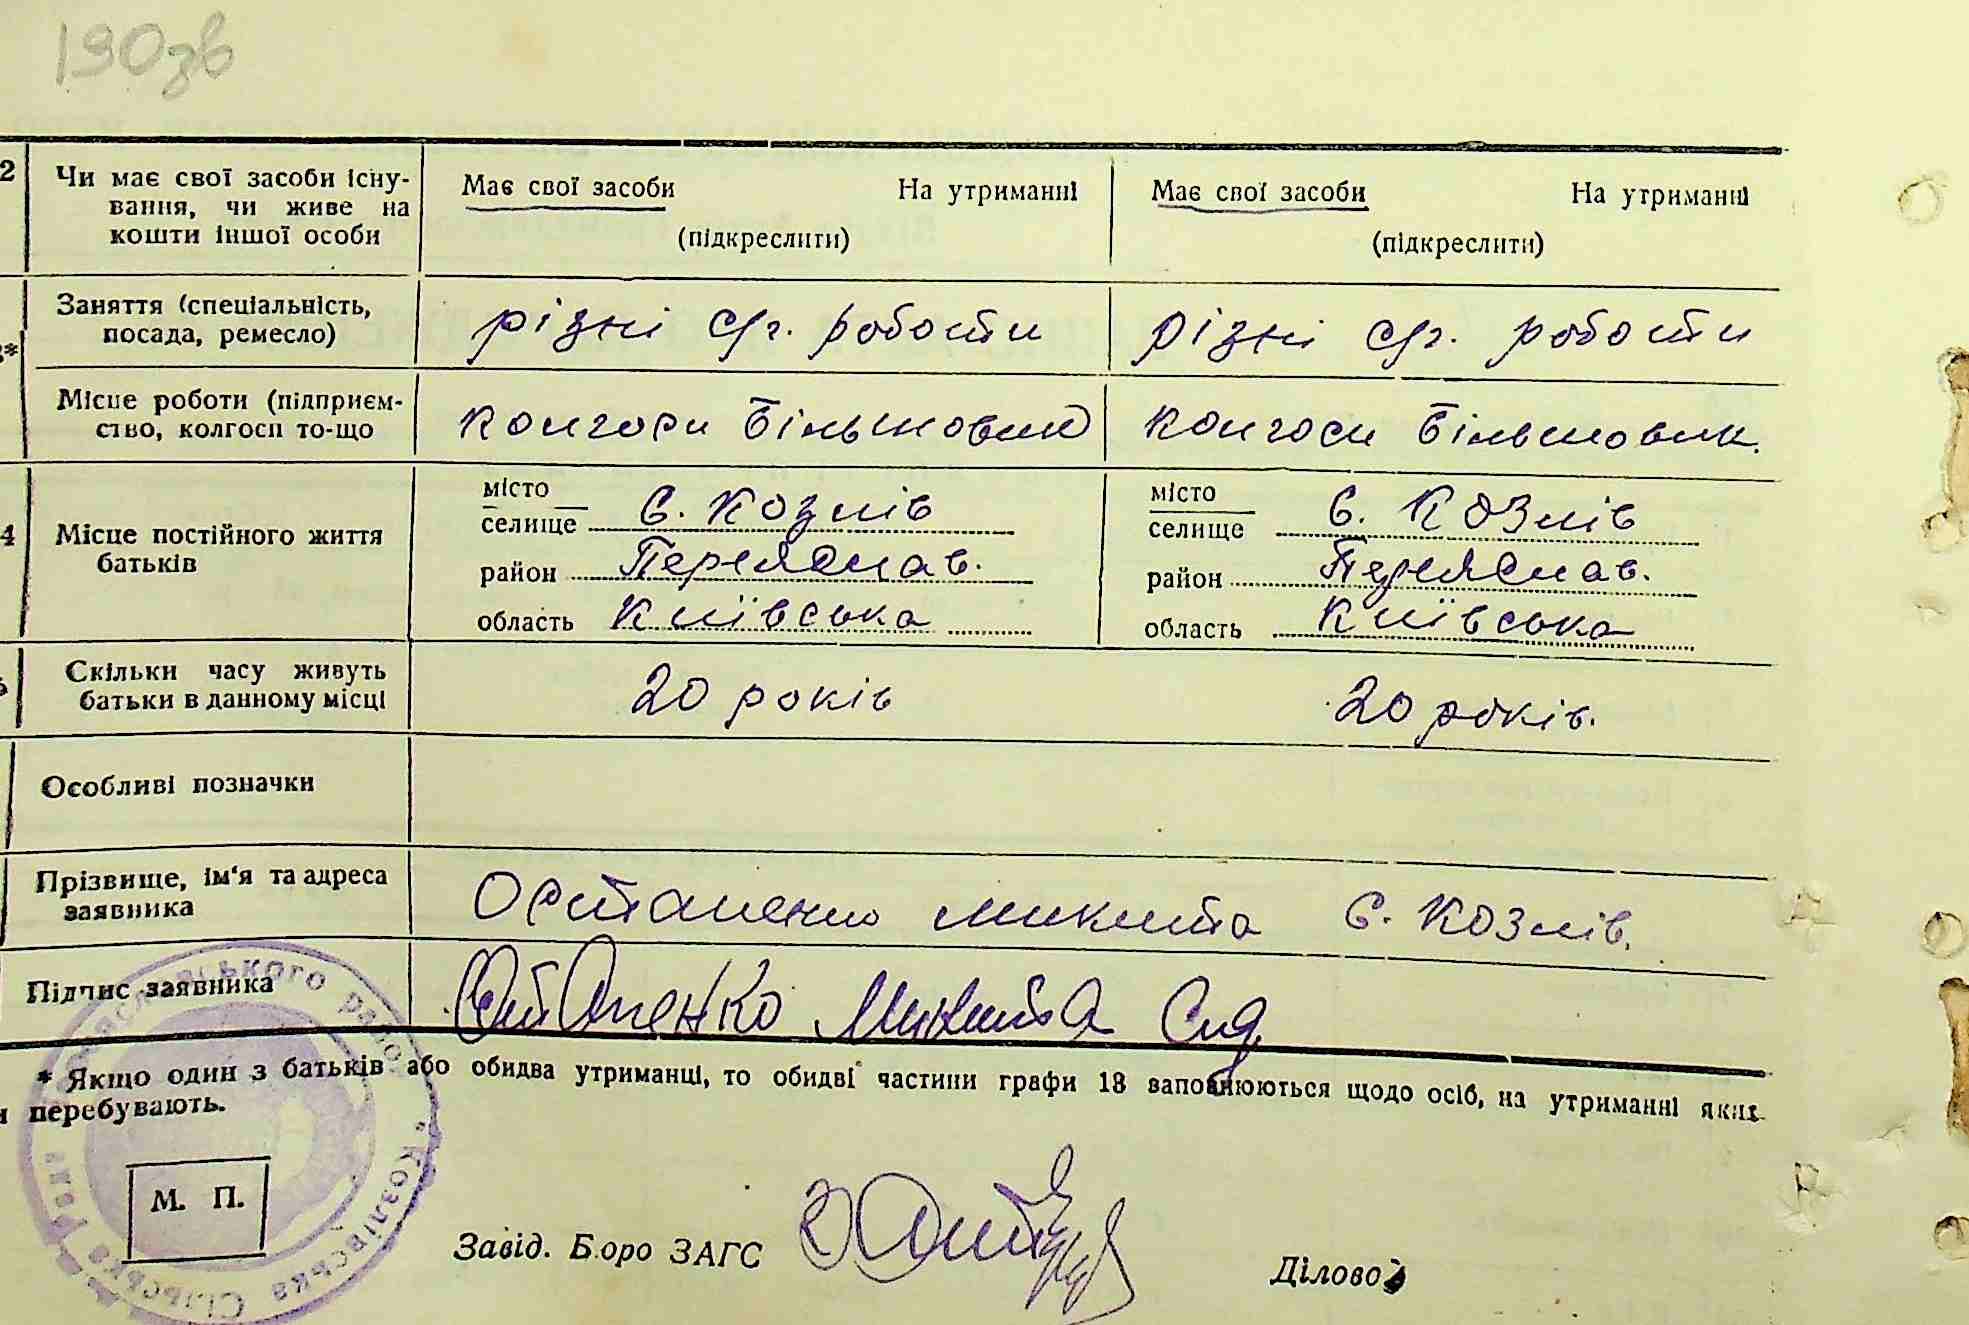 190зв
2 Чи має свої засоби існу-
вання, чи живе на
кошти іншої особи
Має свої засоби На утриманні
(підкреслити)
Має свої засоби На утриманні
(підкреслити)
Заняття (спеціальність,
посада, ремесло)
різні с/г. роботи різні с/г. роботи
Місце роботи (підприєм-
ство, колгосп то-що
колгосп Більшовик колгосп Більшовик.
4 Місце постійного життя
батьків
місто
селище с. Козлів
район Переяслав.
область Київська
місто
селище с. Козлів
район Переяслав.
область Київська
Скільки часу живуть
батьки в данному місці
20 років 20 років.
Особливі позначки
Прізвище, ім'я та адреса
заявника
Остапенко Микита с. Козлів.
Підпис заявника
Остапенко Микита
* Якщо один з батьків або обидва утриманці, то обидві частини графи 13 заповнюються щодо осіб, на утриманні яких
перебувають.
М. П.
Завід. Бюро ЗАГС
Діловод
Козлівська Сільська рада